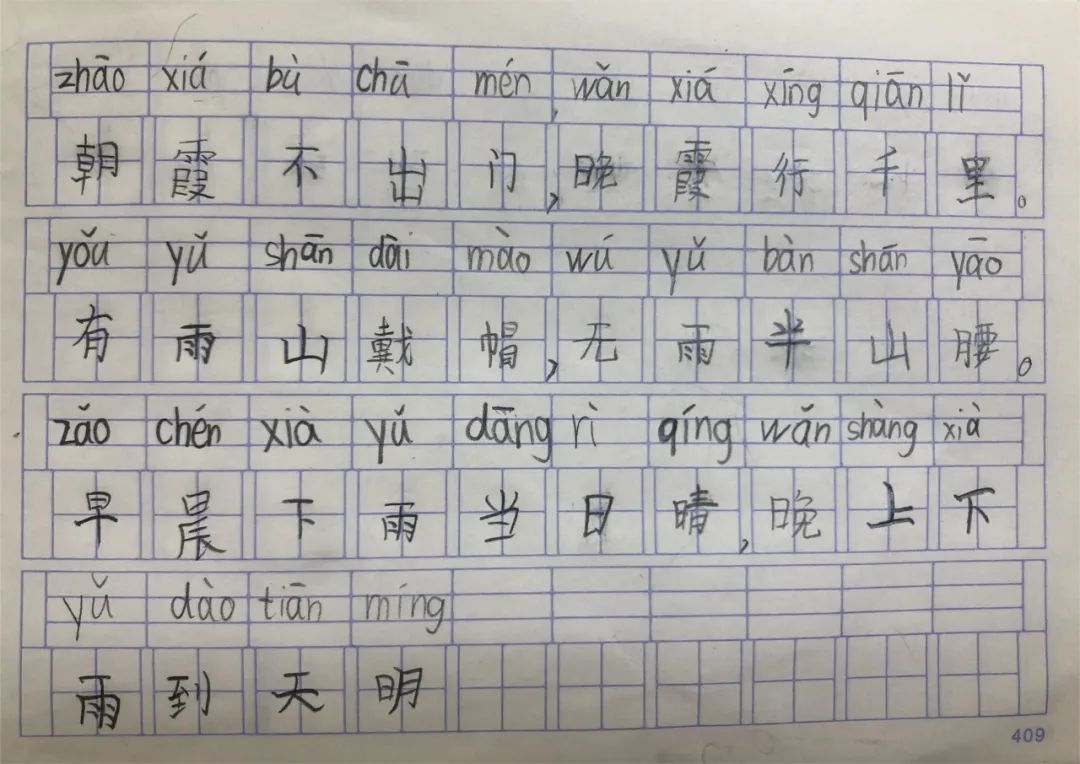 zhāo xiá bù chū mén, wǎn xiá xíng qiān lǐ
朝霞不出门，晚霞行千里。
yǒu yǔ shān dāi mào wú yǔ bàn shān yāo
有雨山戴帽，无雨半山腰。
zǎo chén xià yǔ dāng rì qíng wǎn shàng xià
早晨下雨当日晴，晚上下
yǔ dào tiān míng
雨到天明
409